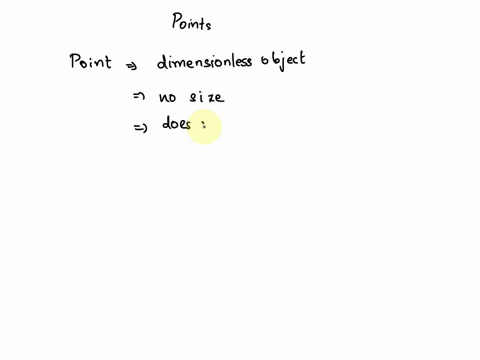 Points
Point ⇒ dimensionless object
⇒ no size
⇒ does